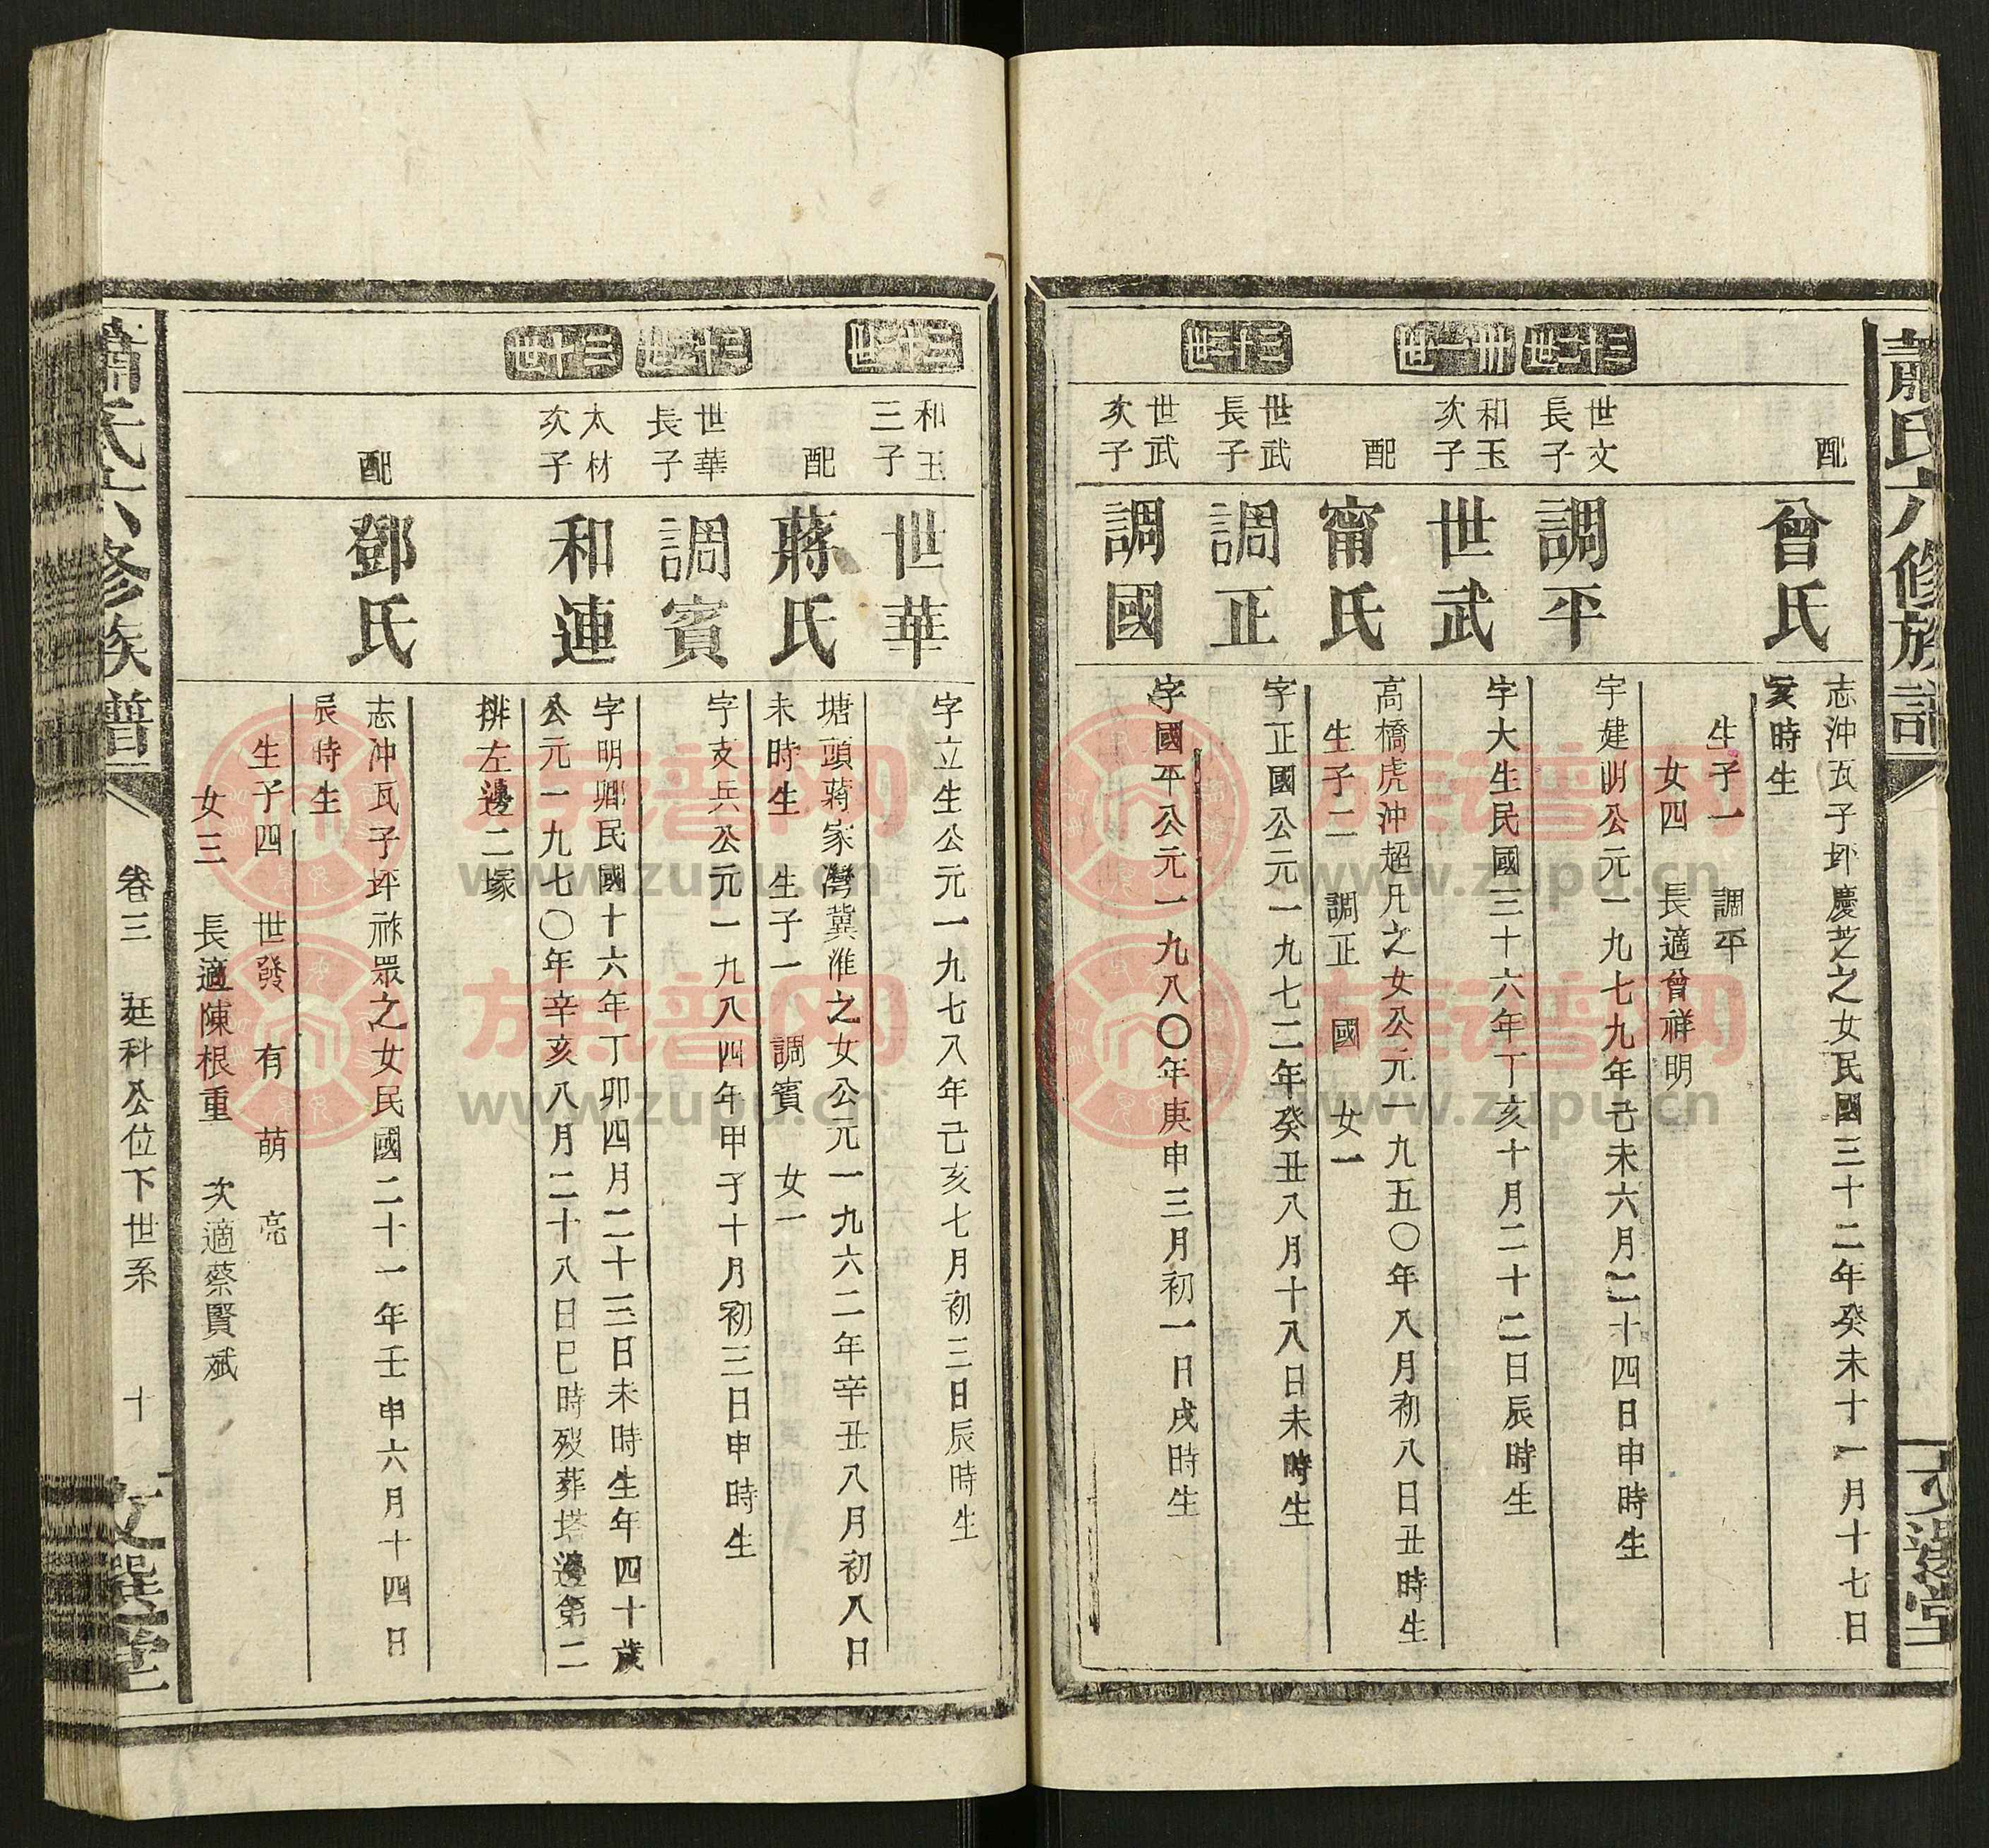 蕭氏六修族譜
文選堂
配
曾氏
志沖瓦子坪慶芝之女民國三十二年癸未十一月十七日
亥時生
生子一 調平
女四 長適曾祥明
三十二世
世文
長子
調平
字建明公元一九七九年己未六月二十四日申時生
卅一世
和玉
次子
世武
字大生民國三十六年丁亥十月二十二日辰時生
配
甯氏
高橋虎沖超凡之女公元一九五〇年八月初八日丑時生
生子二 調正 國 女一
世武
長子
調正
字正國公元一九七二年癸丑八月十八日未時生
三十二世
世武
次子
調國
字國平公元一九八〇年庚申三月初一日戌時生
三十一世
和玉
三子
世華
字立生公元一九七八年己亥七月初三日辰時生
配
蔣氏
塘頭蔣家灣冀淮之女公元一九六二年辛丑八月初八日
未時生 生子一 調賓 女一
三十二世
世華
長子
調賓
字支兵公元一九八四年甲子十月初三日申時生
三十世
太材
次子
和連
字明卿民國十六年丁卯四月二十三日未時生年四十歲
公元一九七〇年辛亥八月二十八日巳時歿葬塔邊第二
排左邊二塚
配
鄧氏
志沖瓦子坪祚眾之女民國二十一年壬申六月十四日
辰時生
生子四 世發 有 萌 亮
女三 長適陳根重 次適蔡賢斌
蕭氏六修族譜
卷三 廷科公位下世系 十
文選堂
族譜网
www.zupu.cn
族譜网
www.zupu.cn
族譜网
www.zupu.cn
族譜网
www.zupu.cn